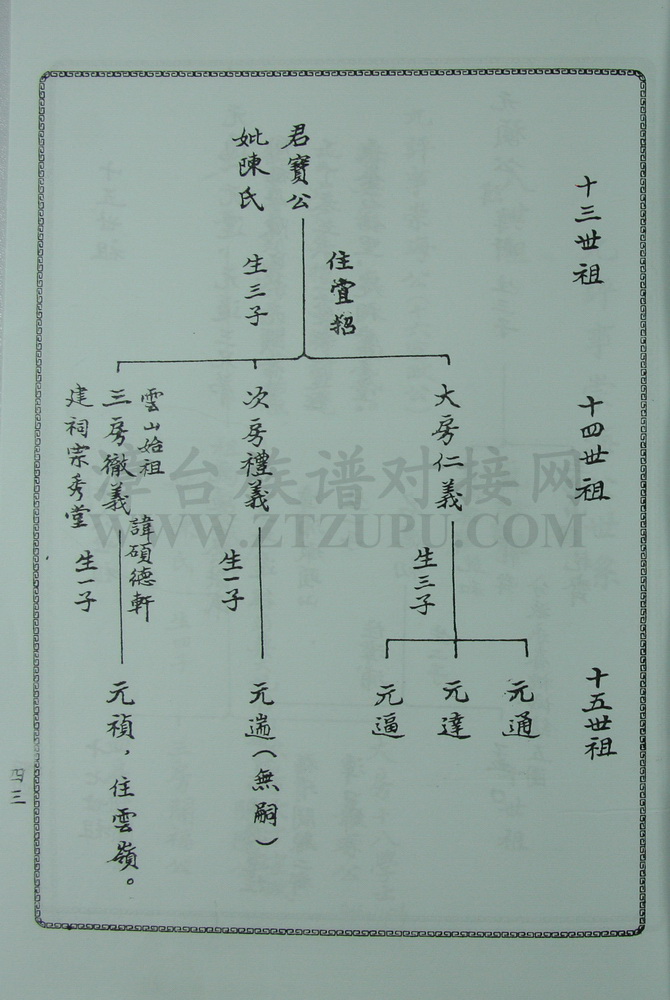 十三世祖
君寶公
妣陳氏
住宜招
生三子
十四世祖
大房仁義
生三子
次房禮義
生一子
雲山始祖
三房徹義
諱碩德軒
建祠宗秀堂
生一子
十五世祖
元通
元達
元逼
元遄(無嗣)
元禎,住雲嶺。
四三
津台族谱对接网
WWW.ZTZUPU.COM